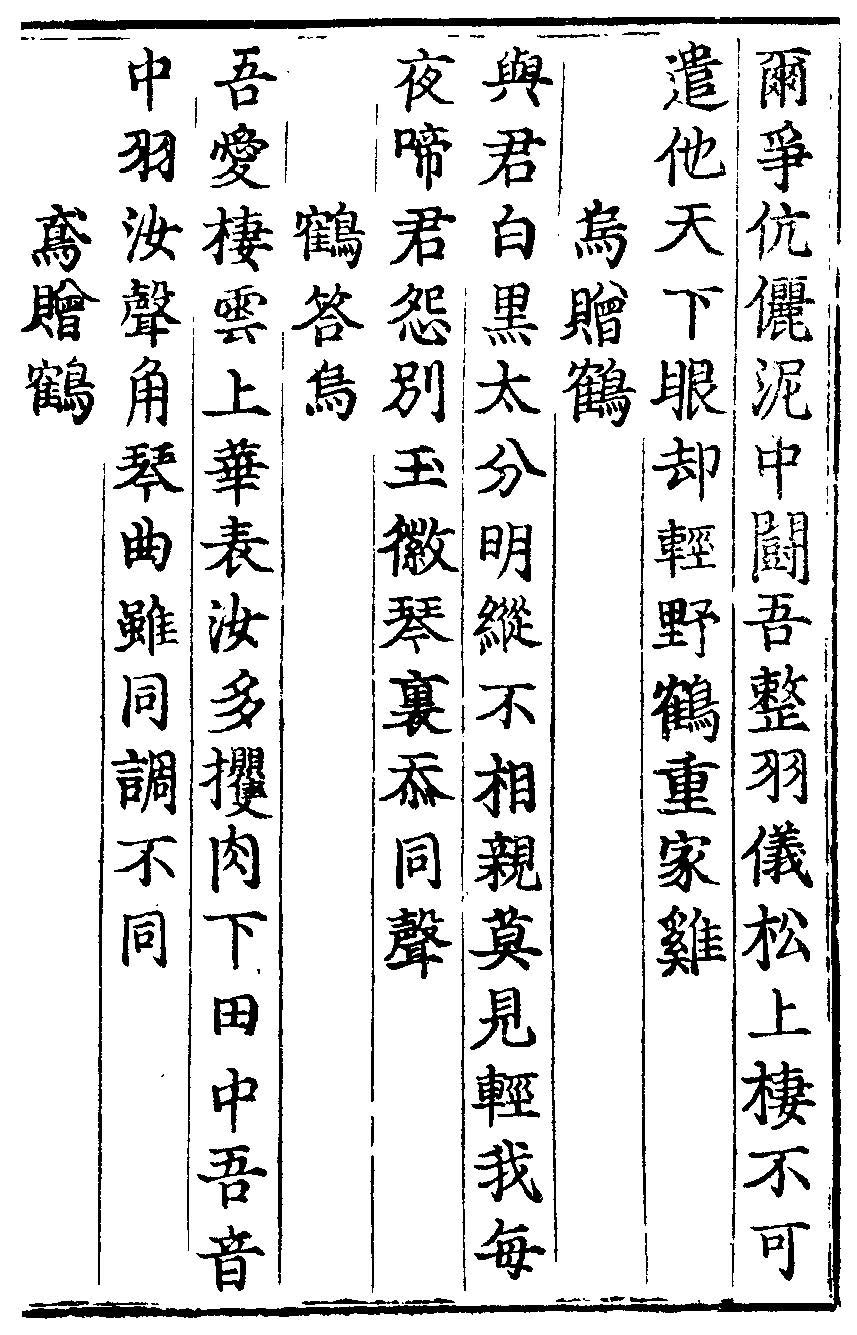 爾爭伉儷泥中鬪吾整羽儀松上棲不可
遣他天下眼却輕野鶴重家雞
烏贈鶴
與君白黒太分明縱不相親莫見輕我每
夜啼君怨別玉徽琴裏忝同聲
鶴答烏
吾愛棲雲上華表汝多攫肉下田中吾音
中羽汝聲角琴曲雖同調不同
鳶贈鶴